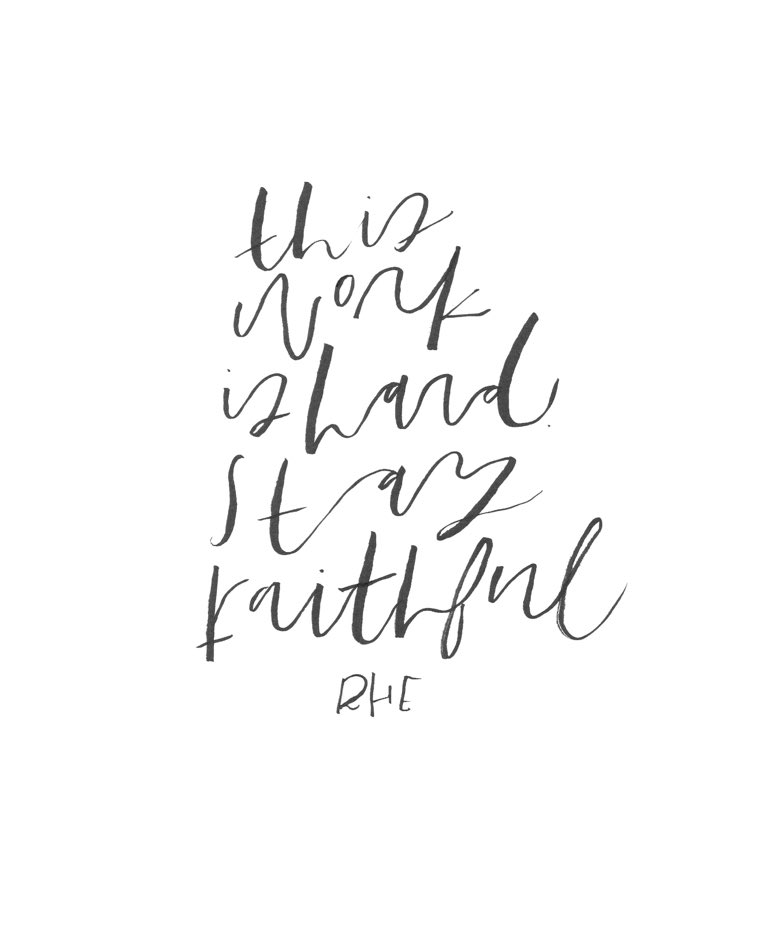 this
work
is hard.
stay
faithful
RHE